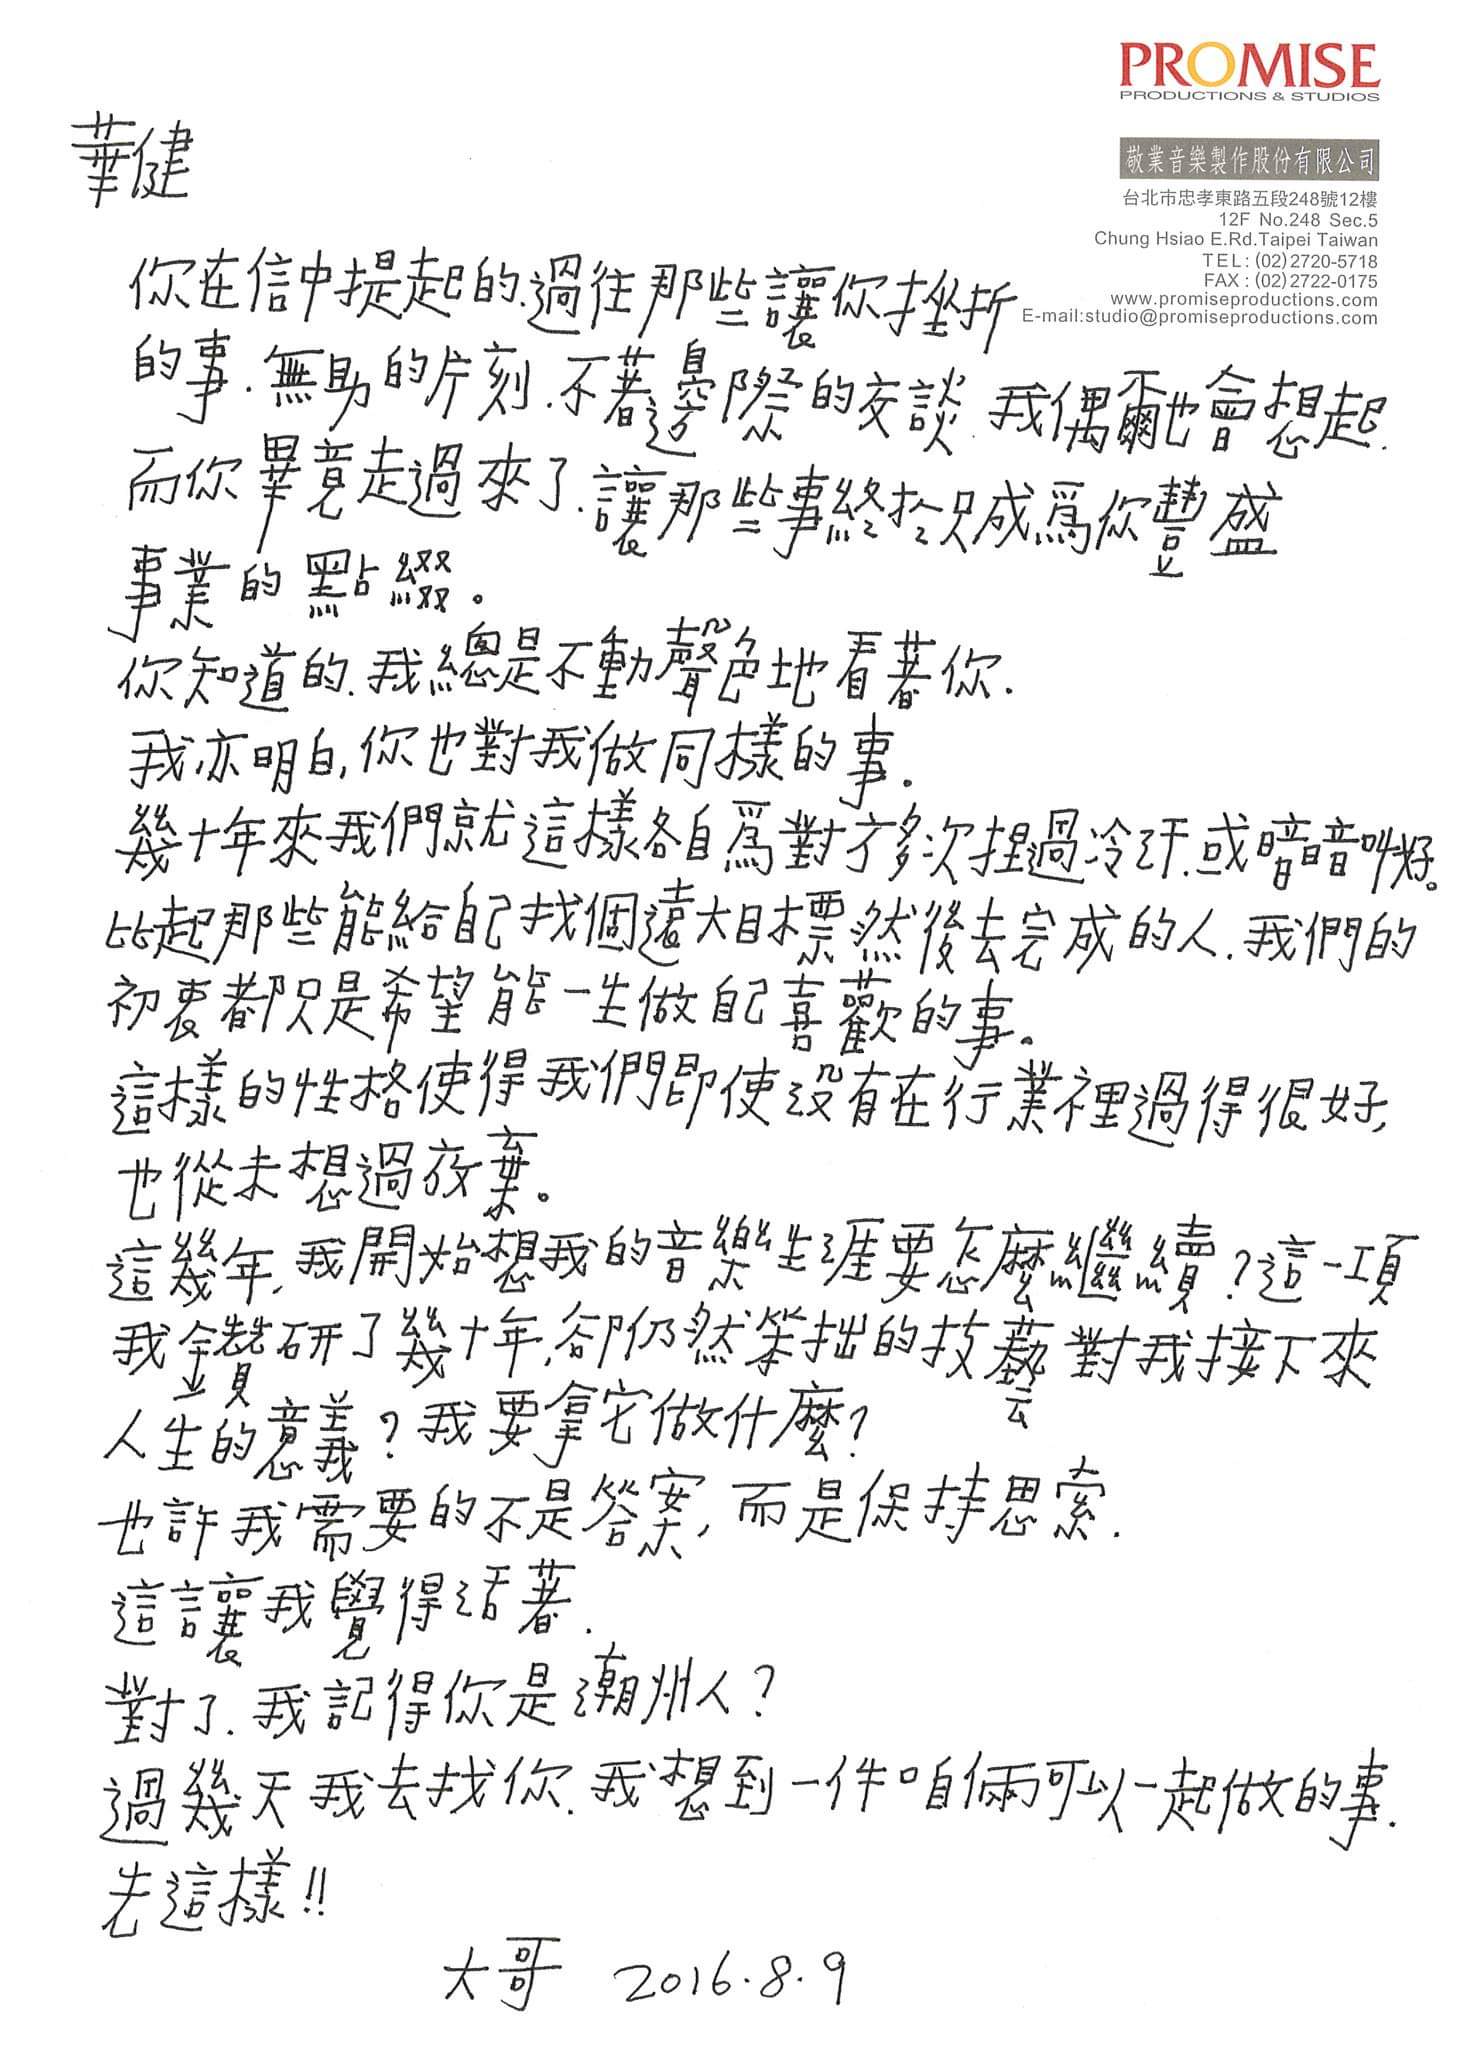 PROMISE
PRODUCTIONS & STUDIOS
敬業音樂製作股份有限公司
台北市忠孝東路五段248號12樓
12F No.248 Sec.5
Chung Hsiao E.Rd.Taipei Taiwan
TEL:(02)2720-5718
FAX:(02)2722-0175
www.promiseproductions.com
E-mail:studio@promiseproductions.com
華健
你在信中提起的.過往那些讓你挫折
的事.無助的片刻.不著邊際的交談.我偶爾也會想起.
而你畢竟走過來了.讓那些事終於只成為你豐盛
事業的點綴。
你知道的.我總是不動聲色地看著你.
我亦明白,你也對我做同樣的事.
幾十年來我們就這樣各自為對方多次捏過冷汗.或暗暗叫好。
比起那些能給自己找個遠大目標然後去完成的人.我們的
初衷都只是希望能一生做自己喜歡的事。
這樣的性格使得我們即使沒有在行業裡過得很好,
也從未想過放棄。
這幾年,我開始想我的音樂生涯要怎麼繼續?這一項
我鑽研了幾十年,卻仍然笨拙的技藝對我接下來
人生的意義?我要拿它做什麼?
也許我需要的不是答案,而是保持思索.
這讓我覺得活著.
對了.我記得你是潮州人?
過幾天我去找你.我想到一件咱倆可以一起做的事.
先這樣!!
大哥 2016.8.9